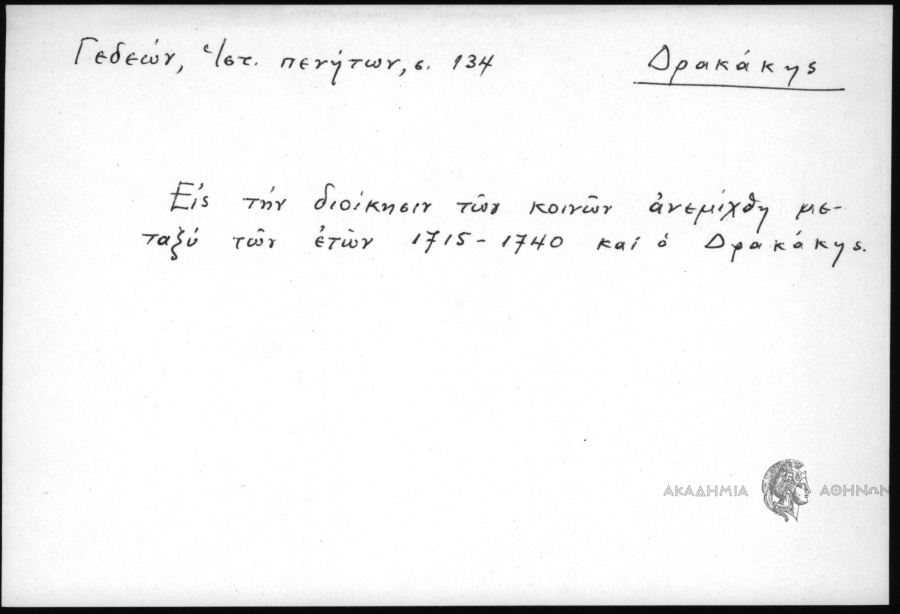 Γεδεών, Ἱστ. πενήτων, σ. 134
Δρακάκης
Εἰς τήν διοίκησιν τῶν κοινῶν ἀνεμίχθη με-
ταξύ τῶν ἐτῶν 1715-1740 καί ὁ Δρακάκης.
ΑΚΑΔΗΜΙΑ ΑΘΗΝΩΝ